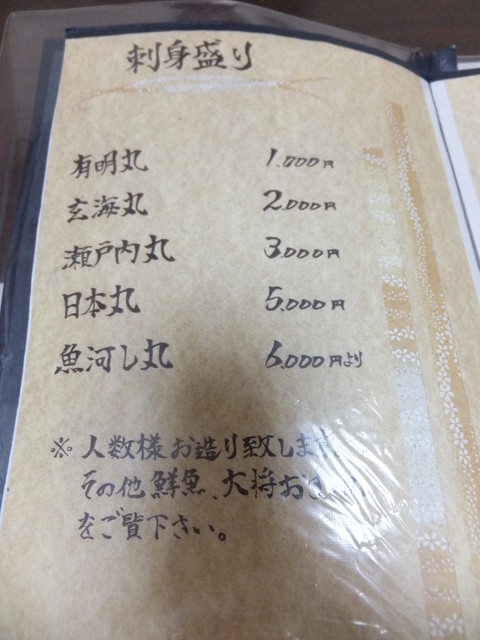 刺身盛り
有明丸 1.000円
玄海丸 2.000円
瀬戸内丸 3.000円
日本丸 5.000円
魚河し丸 6.000円より
※人数様お造り致します
その他鮮魚、大将お
をご覧下さい。